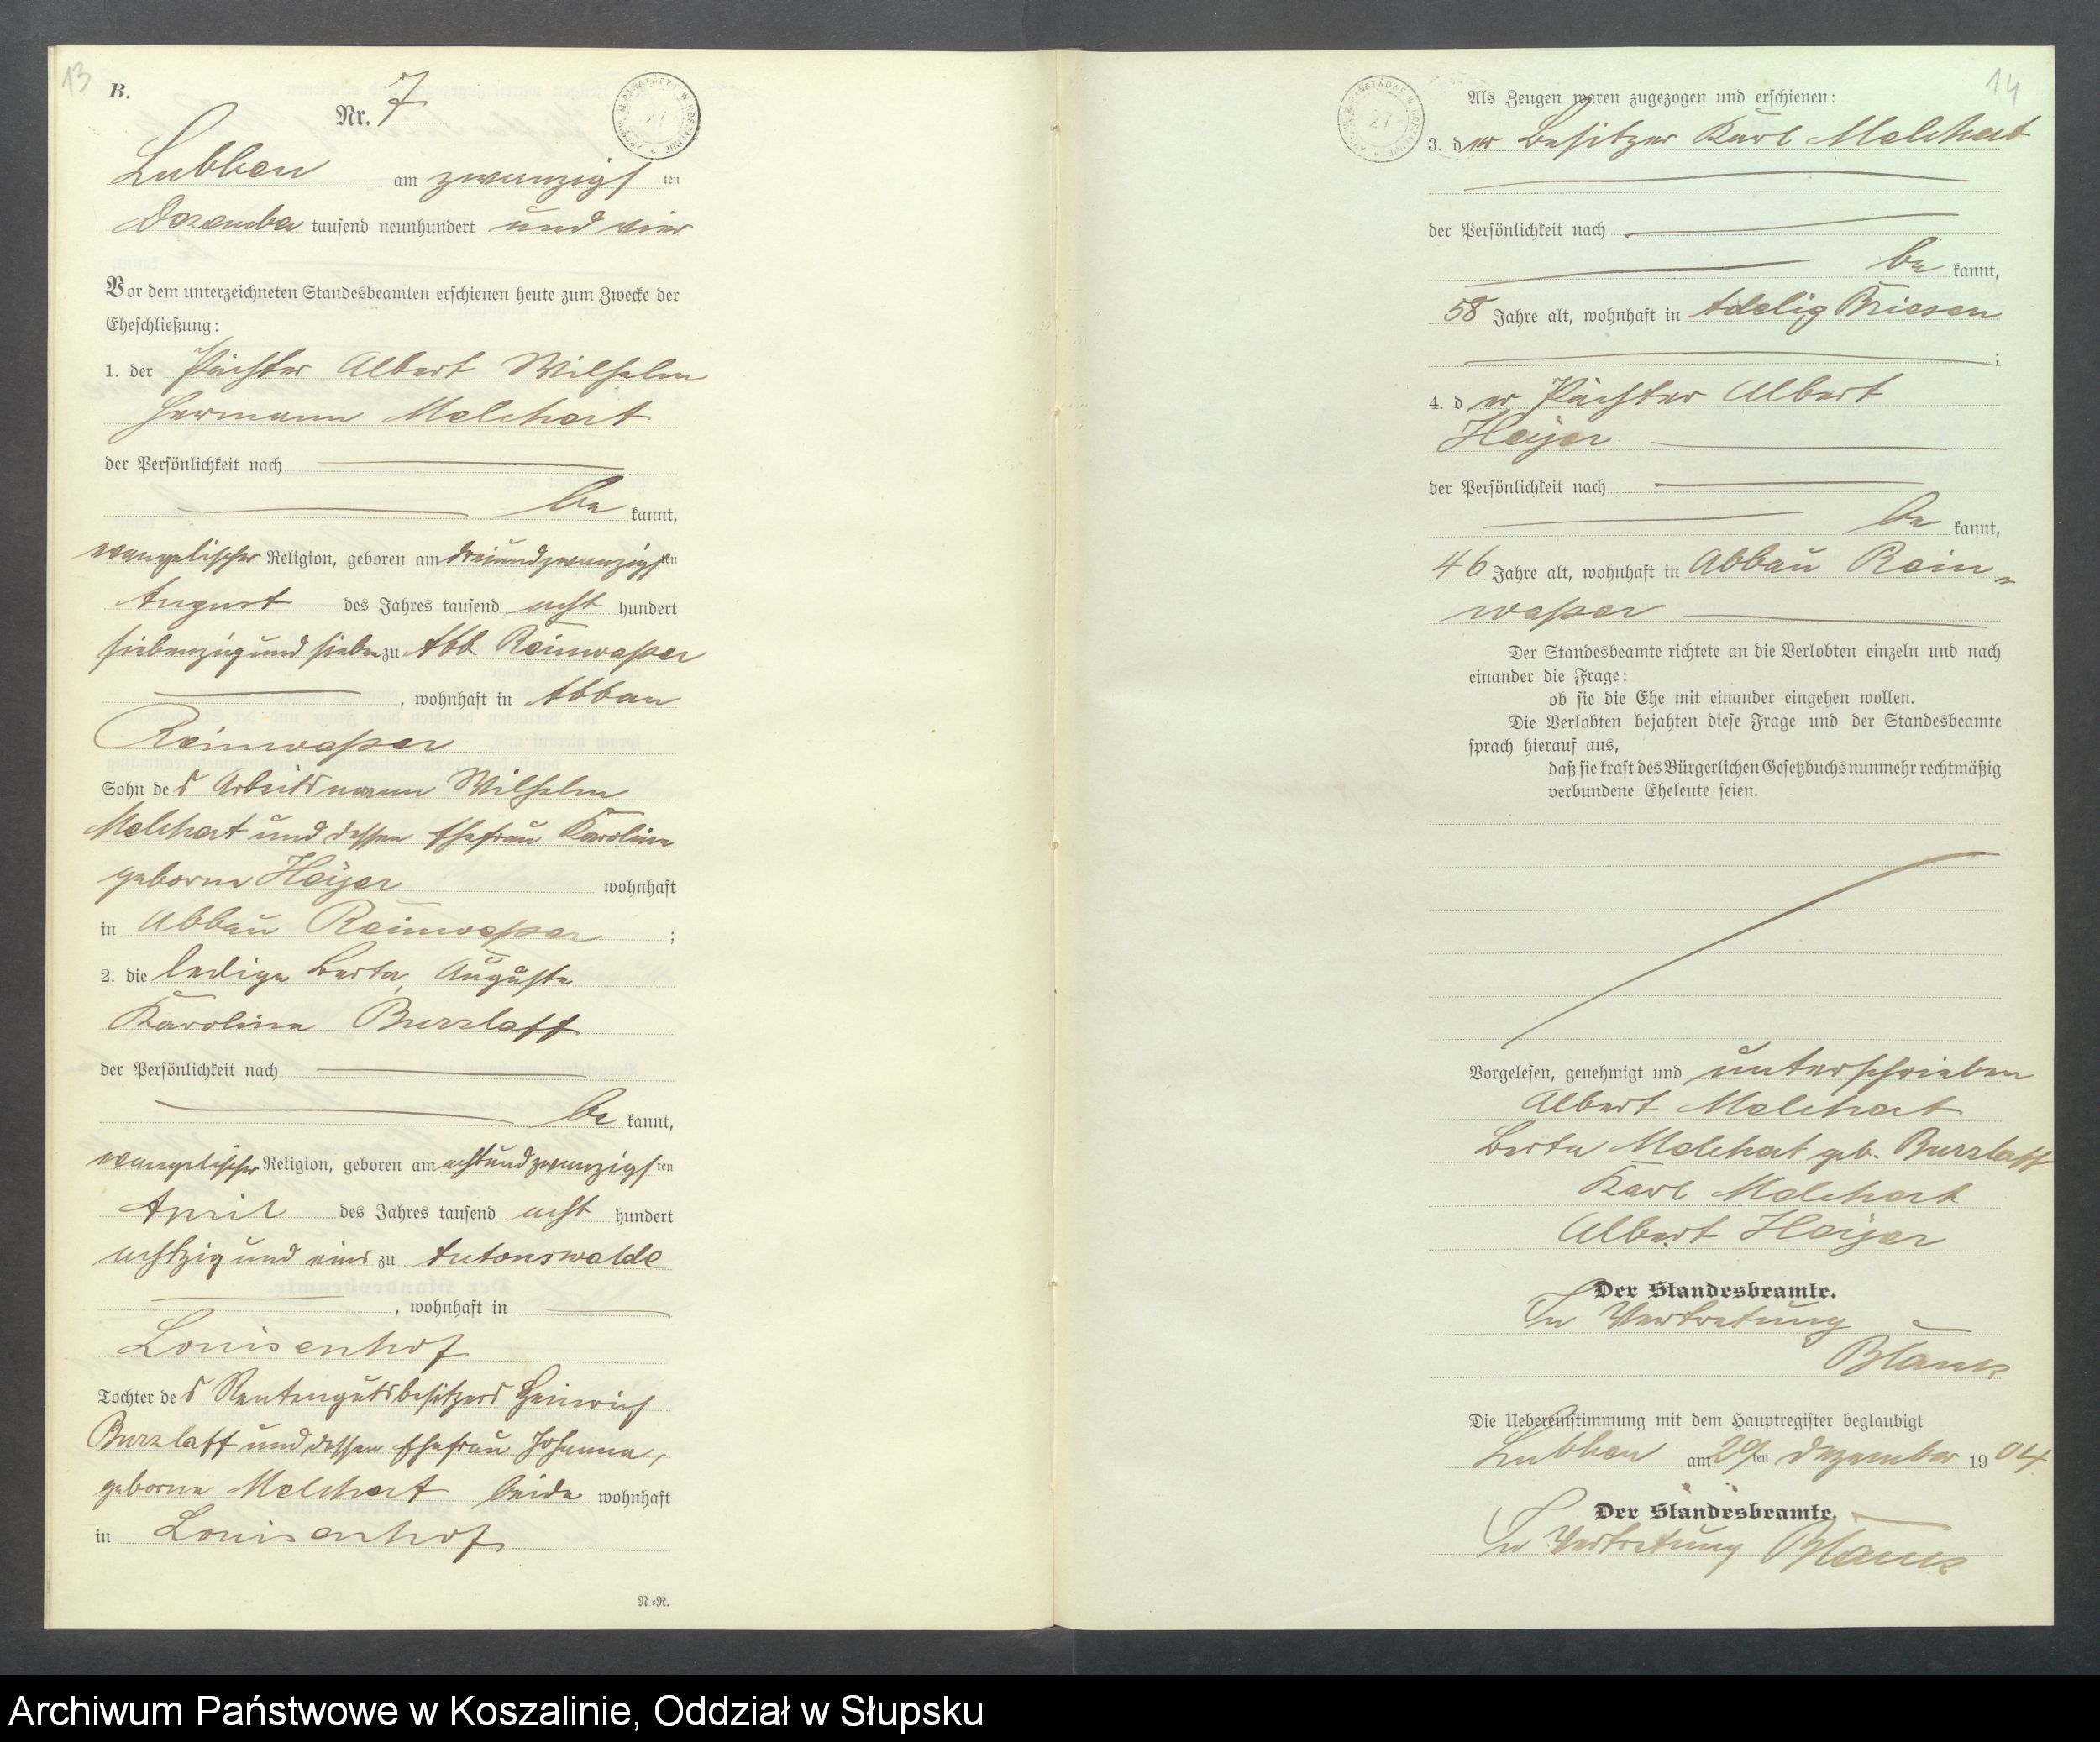 13
B.
Nr. 7
Lubben am zwanzigsten
Dezember tausend neunhundert und vier
Vor dem unterzeichneten Standesbeamten erschienen heute zum Zwecke der
Eheschließung:
1. der Pächter Albert Wilhelm
Hermann Melchert
der Persönlichkeit nach
be kannt,
evangelischer Religion, geboren am dreiundzwanzigsten
August des Jahres tausend acht hundert
siebenzig und sieben zu Abb. Reinwasser
, wohnhaft in Abbau
Reinwasser
Sohn des Arbeitsmann Wilhelm
Melchert und dessen Ehefrau Karoline
geborne Heyer wohnhaft
in Abbau Reinwasser ;
2. die ledige Berta, Auguste
Karoline Burzlaff
der Persönlichkeit nach
be kannt,
evangelischer Religion, geboren am achtundzwanzigsten
April des Jahres tausend acht hundert
achtzig und eins zu Antonswalde
, wohnhaft in
Louisenhof
Tochter des Rentengutsbesitzers Heinrich
Burzlaff und dessen Ehefrau Johanna,
geborne Melchert beide wohnhaft
in Louisenhof
N=R.
14
27
Als Zeugen waren zugezogen und erschienen:
3. der Besitzer Karl Melchert
der Persönlichkeit nach
be kannt,
58 Jahre alt, wohnhaft in Adelig Briesen
;
4. der Pächter Albert
Heyer
der Persönlichkeit nach
be kannt,
46 Jahre alt, wohnhaft in Abbau Rein=
wasser
Der Standesbeamte richtete an die Verlobten einzeln und nach
einander die Frage:
ob sie die Ehe mit einander eingehen wollen.
Die Verlobten bejahten diese Frage und der Standesbeamte
sprach hierauf aus,
daß sie kraft des Bürgerlichen Gesetzbuchs nunmehr rechtmäßig
verbundene Eheleute seien.
Vorgelesen, genehmigt und unterschrieben
Albert Melchert
Berta Melchert geb. Burzlaff
Karl Melchert
Albert Heyer
Der Standesbeamte.
In Vertretung
Blank
Die Uebereinstimmung mit dem Hauptregister beglaubigt
Lubben am 20ten Dezember 1904.
Der Standesbeamte.
In Vertretung Blank
Archiwum Państwowe w Koszalinie, Oddział w Słupsku